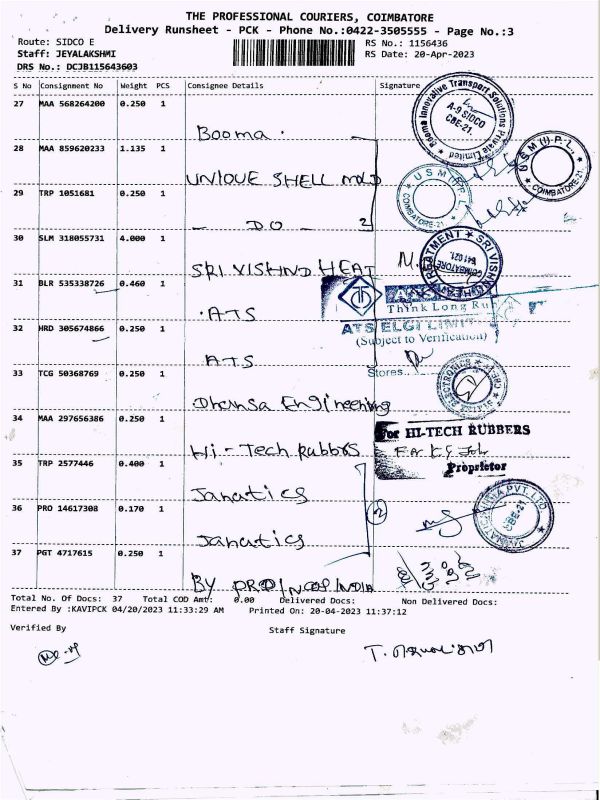 THE PROFESSIONAL COURIERS, COIMBATORE
Delivery Runsheet - PCK - Phone No.:0422-3505555 - Page No.:3
Route: SIDCO E
RS No.: 1156436
Staff: JEYALAKSHMI
RS Date: 20-Apr-2023
DRS No.: DCJB115643603
S No Consignment No Weight PCS Consignee Details Signature
27 MAA 568264200 0.250 1
Booma.
Booma Innovative Transport Solutions Private Limited
A-9 SIDCO
CBE-21.
28 MAA 859620233 1.135 1
UNIQUE SHELL MOLD
U S M (I) P. L.,
COIMBATORE-21
29 TRP 1051681 0.250 1
- DO - 2
U S M (I) P. L.
COIMBATORE-21
30 SLM 318055731 4.000 1
SRI VISHNU HEAT
SRI VISHNU HEAT TREATMENT
COIMBATORE
641 021.
31 BLR 535338726 0.460 1
.ATS
Think Long Ru
ATS ELGI LIMIT
(Subject to Verification)
32 HRD 305674866 0.250 1
ATS
Stores..
33 TCG 50368769 0.250 1
Dhansa Engineering
34 MAA 297656386 0.250 1
Hi-Tech Rubbers
For HI-TECH RUBBERS
Proprietor
35 TRP 2577446 0.400 1
Janatics
36 PRO 14617308 0.170 1
Janatics
2
JANATICS INDIA PVT. LTD
CBE-21
37 PGT 4717615 0.250 1
Total No. Of Docs: 37 Total COD Amt: 0.00 Delivered Docs: Non Delivered Docs:
Entered By :KAVIPCK 04/20/2023 11:33:29 AM Printed On: 20-04-2023 11:37:12
Verified By
Staff Signature